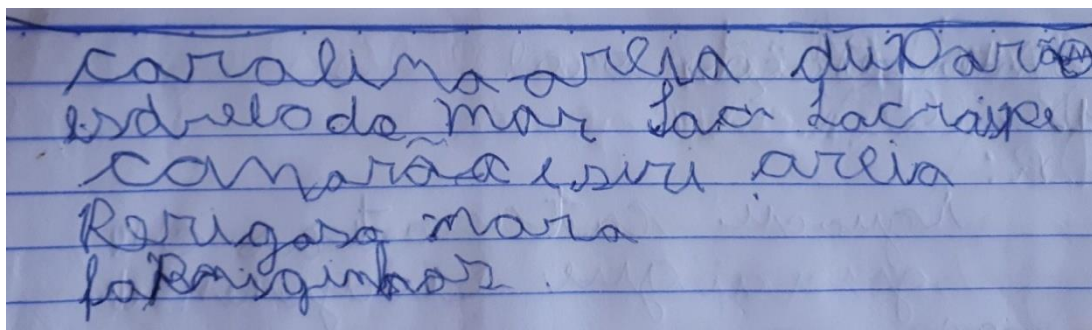 caralina areia duxarão
esdrelo do mar sao Lacraipe
camarão e siri areia
Rerigosa mara
formiginhas.